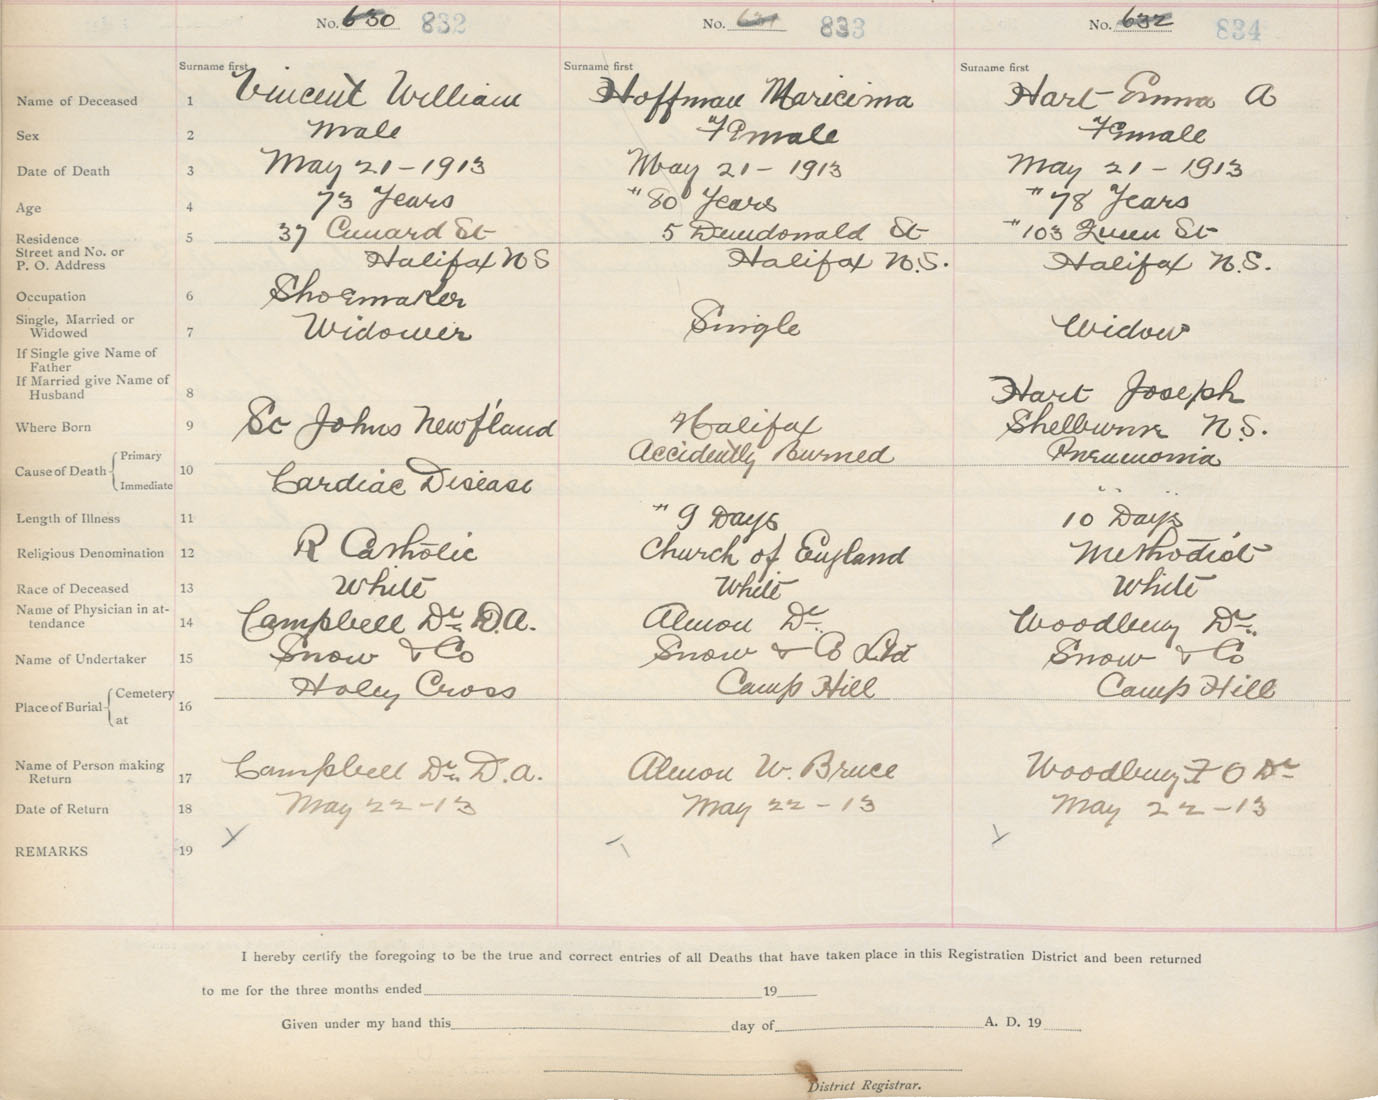 No. 630 832 No. 631 833 No. 632 834
Surname first Surname first Surname first
Name of Deceased 1 Vincent William Hoffman Maricima Hart Emma A
Sex 2 Male Female Female
Date of Death 3 May 21-1913 May 21-1913 May 21-1913
Age 4 73 Years " 80 Years " 78 Years
Residence 5 37 Cunard St 5 Dundonald St " 103 Queen St
Street and No. or
P. O. Address Halifax N S Halifax N.S. Halifax N.S.
Occupation 6 Shoemaker
Single, Married or
Widowed 7 Widower Single Widow
If Single give Name of
Father
If Married give Name of
Husband 8 Hart Joseph
Where Born 9 St Johns Newf'land Halifax Shelburne N.S.
Cause of Death Primary 10 Accidently Burned Pneumonia
Immediate Cardiac Disease
Length of Illness 11 " 9 Days 10 Days
Religious Denomination 12 R Catholic Church of England Methodist
Race of Deceased 13 White White White
Name of Physician in at-
tendance 14 Campbell Dr. D.A. Almon Dr. Woodbury Dr.
Name of Undertaker 15 Snow & Co Snow & Co Ltd Snow & Co
Place of Burial Cemetery 16 Holey Cross Camp Hill Camp Hill
at
Name of Person making
Return 17 Campbell Dr. D.A. Almon W. Bruce Woodbury F O Dr
Date of Return 18 May 22-13 May 22-13 May 22-13
REMARKS 19
I hereby certify the foregoing to be the true and correct entries of all Deaths that have taken place in this Registration District and been returned
to me for the three months ended 19
Given under my hand this day of A. D. 19
District Registrar.